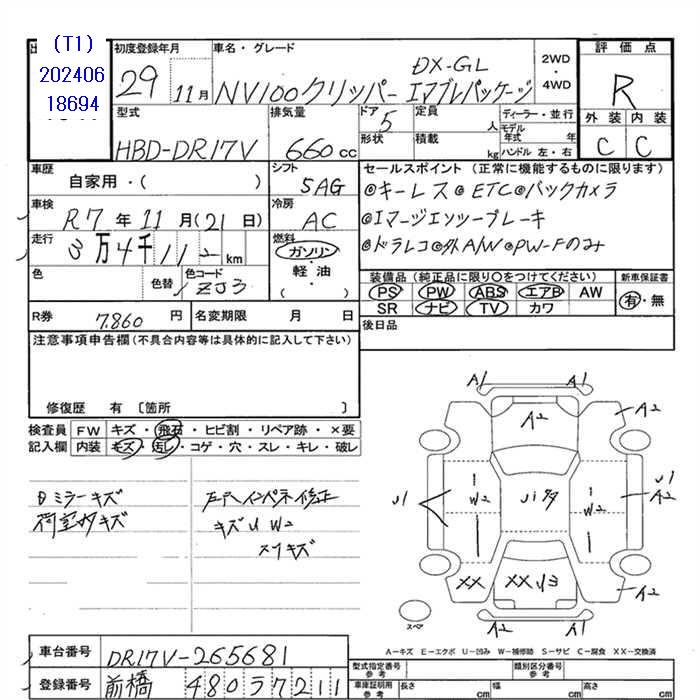 (T1)
202406
18694
初度登録年月
29 11月
車名・グレード
NV100クリッパー
DX-GL
エマブレパッケージ
2WD
・
4WD
評価点
R
外装 内装
C C
型式
HBD-DR17V
排気量
660cc
ドア
5
形状
定員
人
積載
kg
ディーラー・並行
モデル年式 年
ハンドル 左・右
車歴
自家用・( )
シフト
5AG
車検
R7年11月(21日)
冷房
AC
走行
3万4千112km
燃料
ガソリン・
軽・油
( )
色
色替
色コード
ZJ3
セールスポイント (正常に機能するものに限ります)
◎キーレス◎ETC◎バックカメラ
◎エマージエンシーブレーキ
◎ドラレコ◎外A/W◎PW-Fのみ
装備品(純正品に限り○をつけてください)
PS PW ABS エアB AW
SR ナビ TV カワ
新車保証書
有・無
R券 7,860円
名変期限 月 日
後日品
注意事項申告欄(不具合内容等は具体的に記入して下さい)
修復歴 有 〔箇所 〕
検査員
記入欄
FW キズ・飛石・ヒビ割・リペア跡・×要
内装 キズ・汚し・コゲ・穴・スレ・キレ・破レ
ミラーキズ
荷室内キズ
インパネ修正
キズU W2
キズ
A1 A1
A2
A2
U1
W2
U1多
W2
U1
A2
XX
XX U3
A2
A2 A2
スペア
A−キズ E−エクボ U−凹み W−補修跡 S−サビ C−腐食 XX−交換済
車台番号 DR17V-265681
登録番号 前橋 480 う 7211
型式指定番号
参考
類別区分番号
参考
車庫証明用
参考
長さ cm 幅 cm 高さ cm